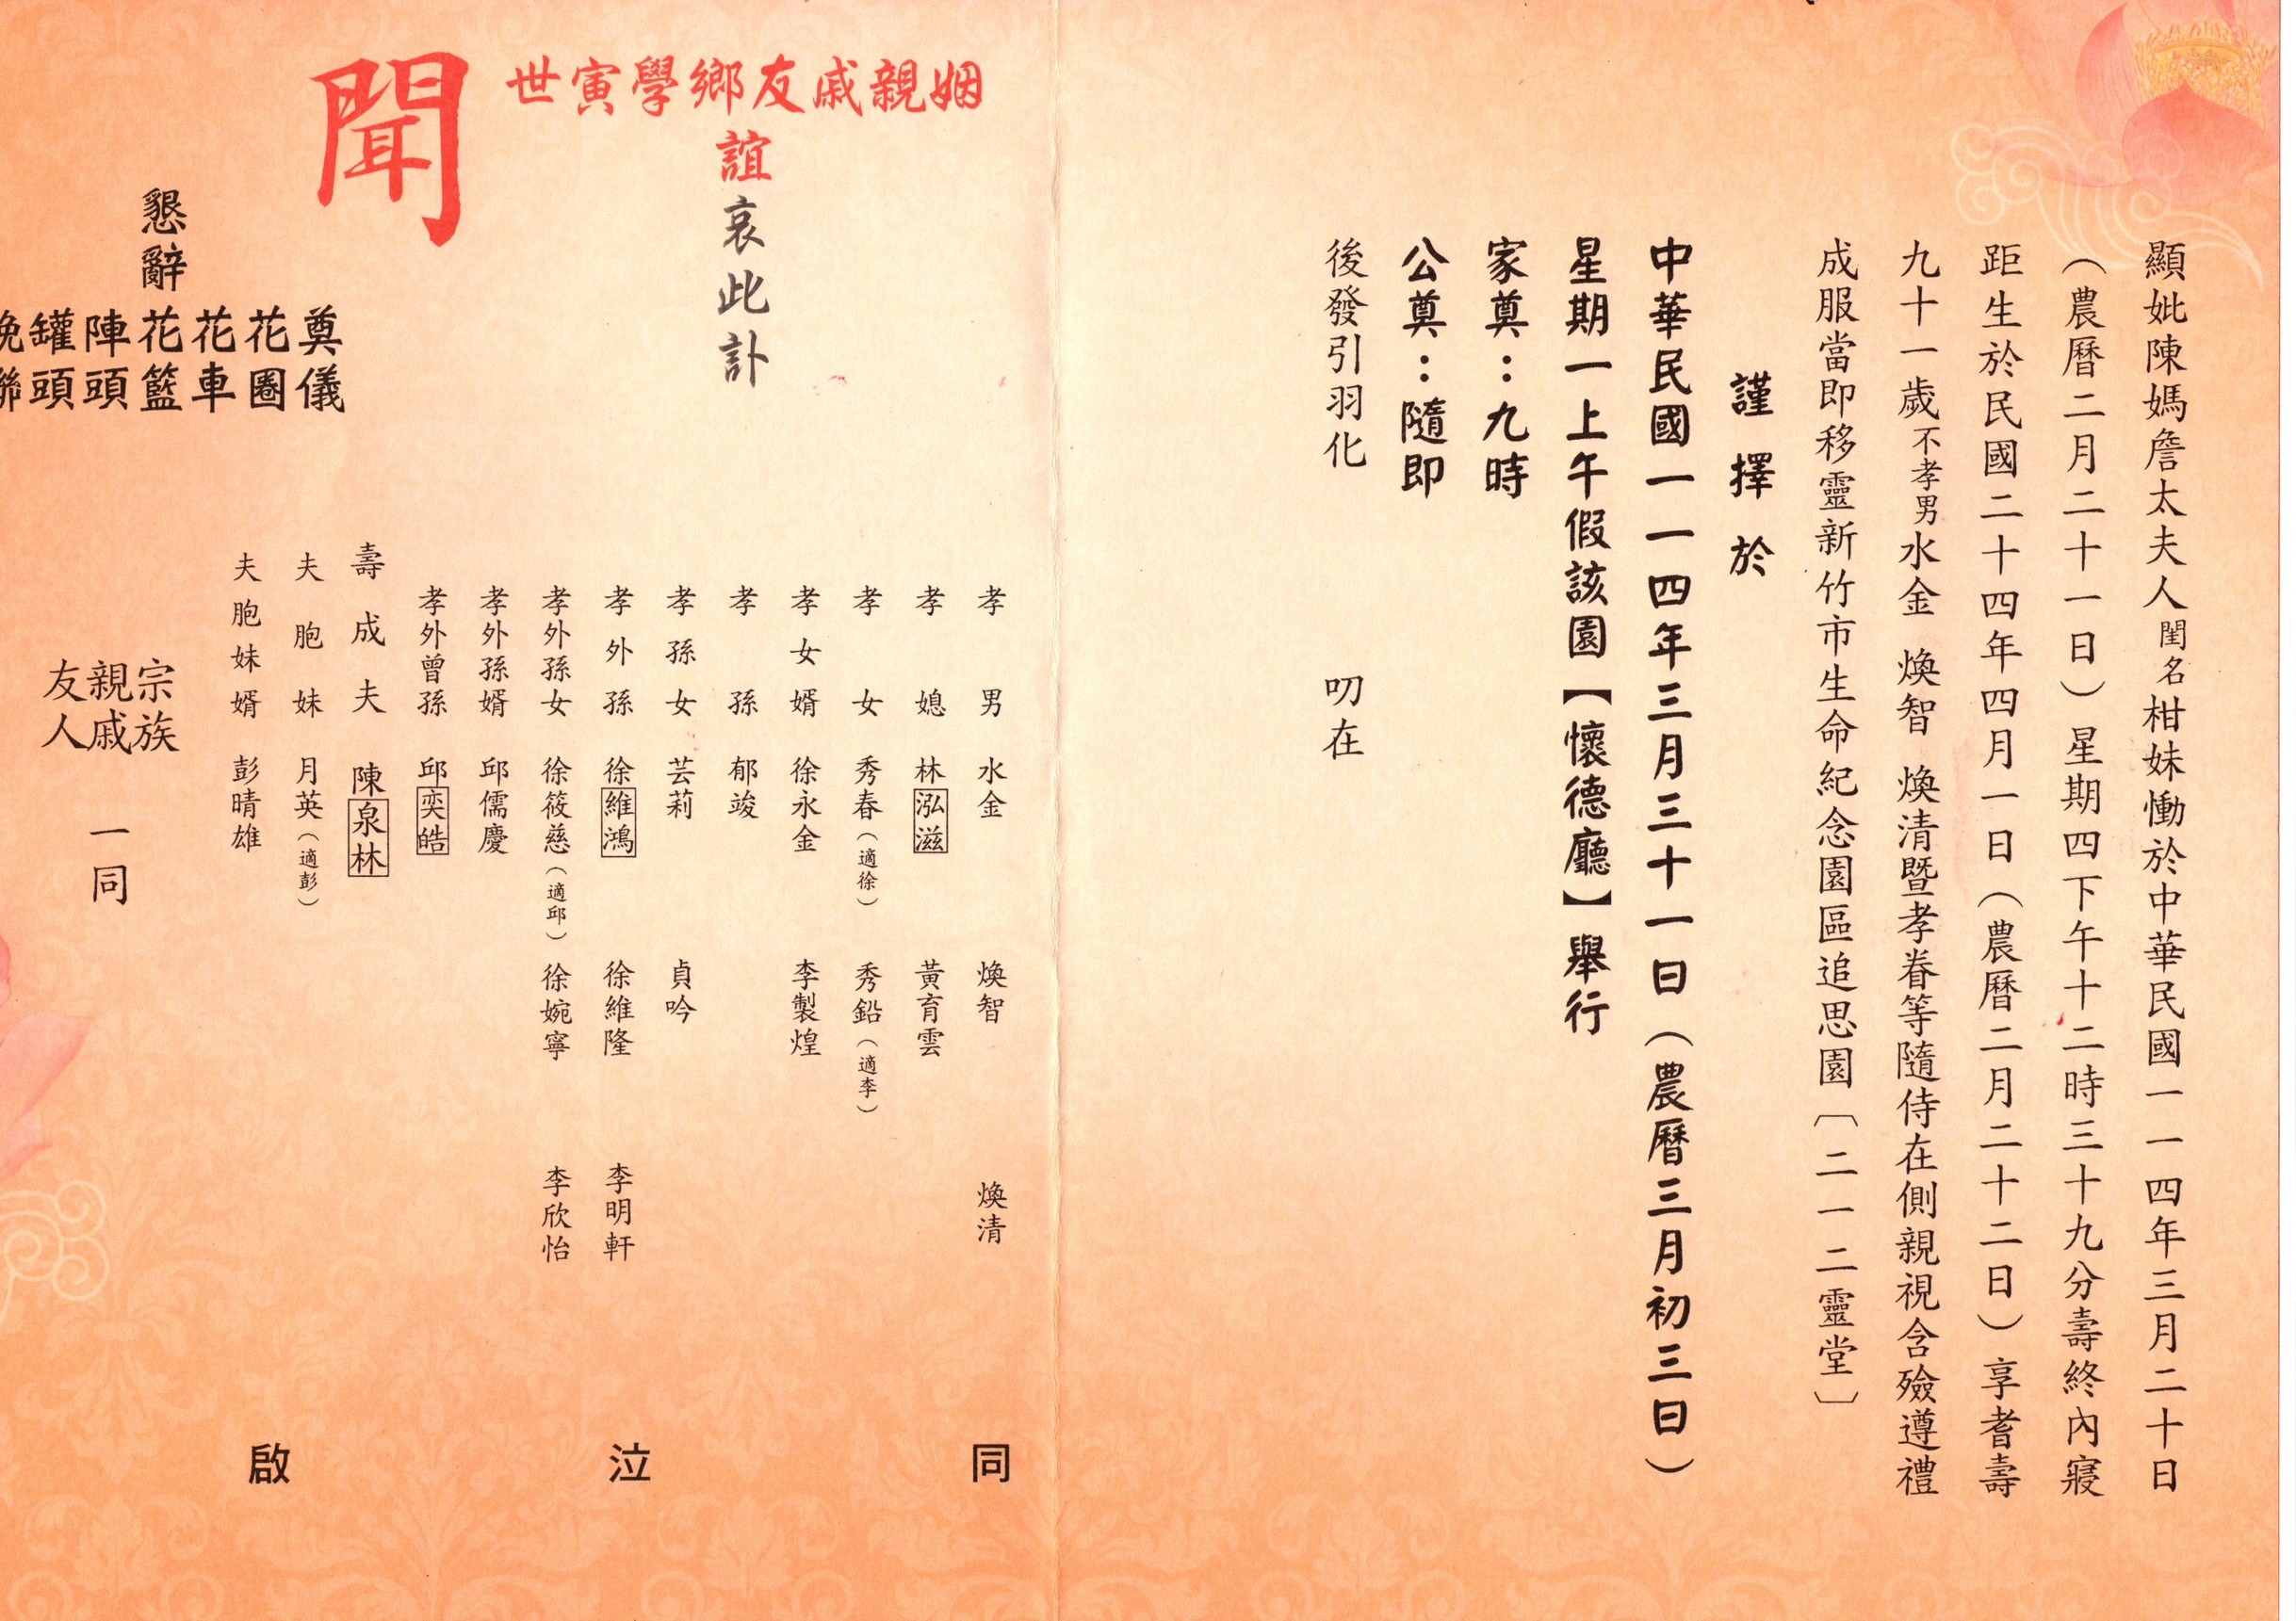 顯妣陳媽詹太夫人閨名柑妹慟於中華民國一一四年三月二十日
（農曆二月二十一日）星期四下午十二時三十九分壽終內寢
距生於民國二十四年四月一日（農曆二月二十二日）享耆壽
九十一歲不孝男水金 煥智 煥清暨孝眷等隨侍在側親視含殮遵禮
成服當即移靈新竹市生命紀念園區追思園〔二一二靈堂〕
謹擇於
中華民國一一四年三月三十一日（農曆三月初三日）
星期一上午假該園【懷德廳】舉行
家奠：九時
公奠：隨即
後發引羽化 叨在
姻親戚友鄉學寅世
誼哀此訃
聞
孝男 水金 煥智 煥清
孝媳 林泓滋 黃育雲
孝女 秀春（適徐） 秀鉛（適李）
孝女婿 徐永金 李製煌
孝孫 郁竣
孝孫女 芸莉 貞吟
孝外孫 徐維鴻 徐維隆 李明軒
孝外孫女 徐筱慈（適邱） 徐婉寧 李欣怡
孝外孫婿 邱儒慶
孝外曾孫 邱奕皓
壽成夫 陳泉林
夫胞妹 月英（適彭）
夫胞妹婿 彭晴雄
同泣啟
懇辭
奠儀
花圈
花車
花籃
陣頭
罐頭
輓聯
宗族
親戚
友人
一同